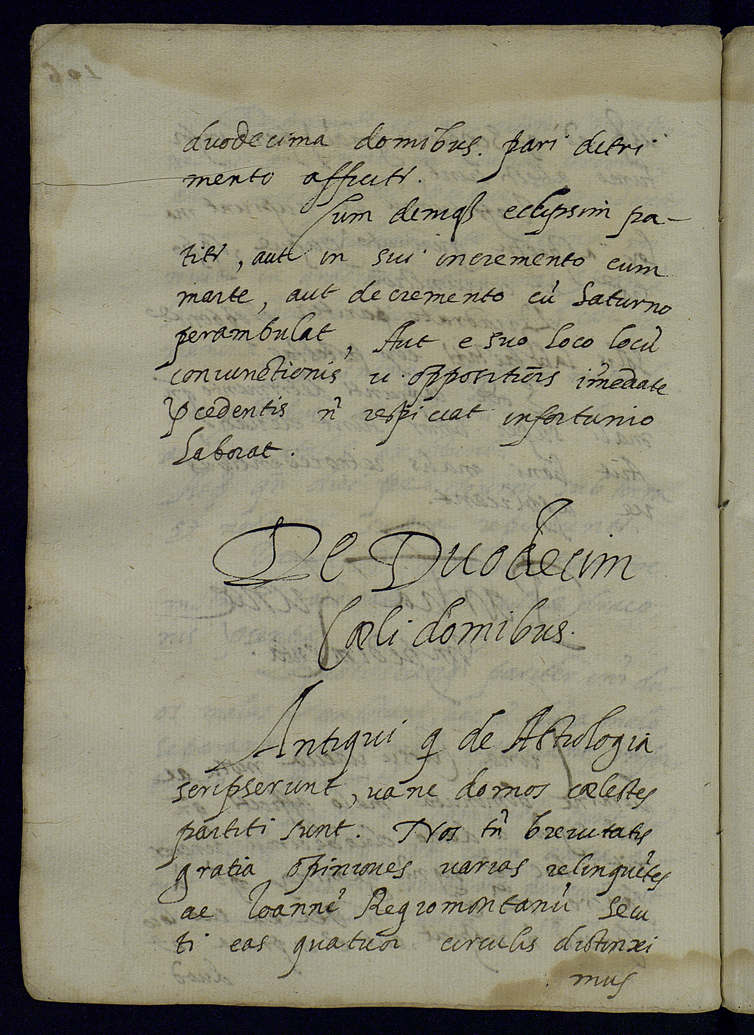 duodecima domibus. pari detri
mento afficitr.
Cum demqȝ eclipsim pa-
titr, aut in sui incremento cum
marte, aut decremento cũ Saturno
perambulat, Aut e suo loco locũ
coniunctionis u oppositiõis im̃ediate
p̱cedentis n̄ respiciat infortunio
laborat.
De Duodecim
Cæli domibus.
Antiqui q̄ de Astrologia
scripserunt, varie domos cælestes
partiti sunt. Nos tñ breuitatis
gratia opiniones varias relinquẽtes
ac Ioannẽ Regiomontanũ Secu
ti eas quatuor circulis distinxi
mus